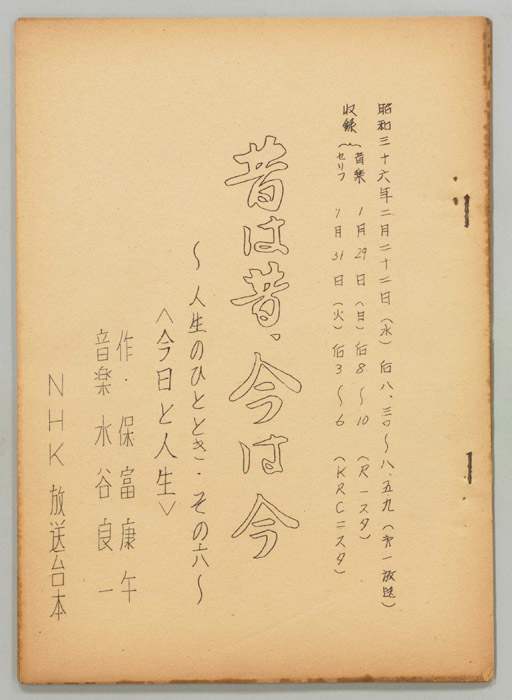 昭和三十六年二月二十二日（水）后八.三〇～八.五九（才一放送）
収録｛音楽 1月29日（日）后8～10（R一スタ）
セリフ 1月31日（火）后3～6（KRCニスタ）
昔は昔、今は今
～人生のひととき・その六～
＜今日と人生＞
作・保富康午
音楽 水谷良一
NHK 放送台本